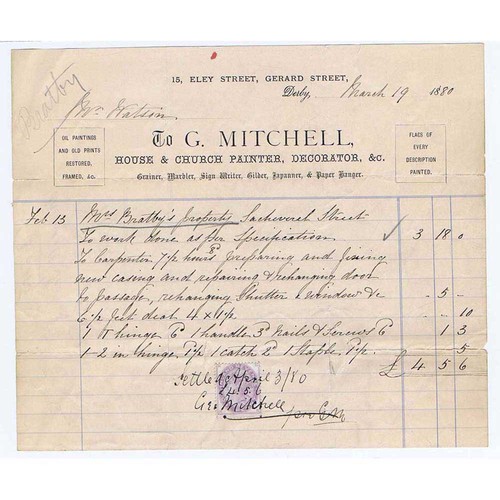 15, ELEY STREET, GERARD STREET,
Derby, March 19 1880
Bratby
Mr Watson
To G. MITCHELL,
HOUSE & CHURCH PAINTER, DECORATOR, &c.
Grainer, Marbler, Sign Writer, Gilder, Japanner, & Paper Hanger.
OIL PAINTINGS
AND OLD PRINTS
RESTORED,
FRAMED, &c.
FLAGS OF
EVERY
DESCRIPTION
PAINTED.
Feb 13 Mrs Bratby's property Sacheveral Street
To work done as per Specification 3 18 0
To Carpenter 7½ hours preparing and fixing
new casing and repairing & rehanging door
to passage, rehanging shutter & window &c - 5 -
6½ feet deal 4 x 1½ - - 10
1 hinge 6 1 handle 3 Nails & Screws 6 1 3
1-2 in hinge 1 catch 2 1 Staple 5
£ 4 5 6
Settled April 3/80
£4.5.6
Geo Mitchell
per G M